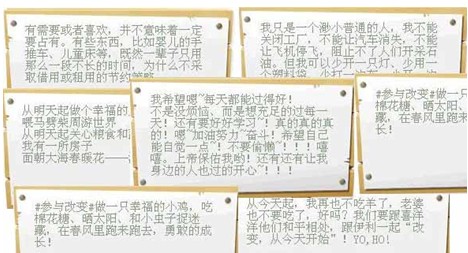 有需要或者喜欢，并不意味着一定
要占有。有些东西，比如婴儿的手
推车、儿童床等，既然一辈子只用
那么一段不长的时间，为什么不采
取借用或租用的节约策略
我只是一个渺小普通的人，我不能
关闭工厂，不能让汽车消失，不能
让飞机停飞，阻止不了人们开采石
油。但我可以少开一只灯、少用一
个塑料袋、
从明天起做个幸福的
喂马劈柴周游世界
从明天起关心粮食和
我有一所房子
面朝大海春暖花——
我希望嗯~每天都能过得好！
不是没烦恼，而是想充足的过每一
天！还有要好好学习！真的真的真
的！嗯~加油努力~奋斗！希望自己
能自觉一点~！不要偷懒~！！！嘻
嘻。上帝保佑我哟！还有还有让我
身边的人也过的开心~！！！
#参与改变#做一
棉花糖、晒太阳、
藏，在春风里跑来
#参与改变#做一只幸福的小鸡，吃
棉花糖、晒太阳、和小虫子捉迷
藏，在春风里跑来跑去，勇敢的成
长！
从今天起，我再也不吃羊了，老婆
也不要吃了，好吗？我们要跟喜洋
洋他们和平相处，跟伊利一起“改
变，从今天开始”！YO,HO!